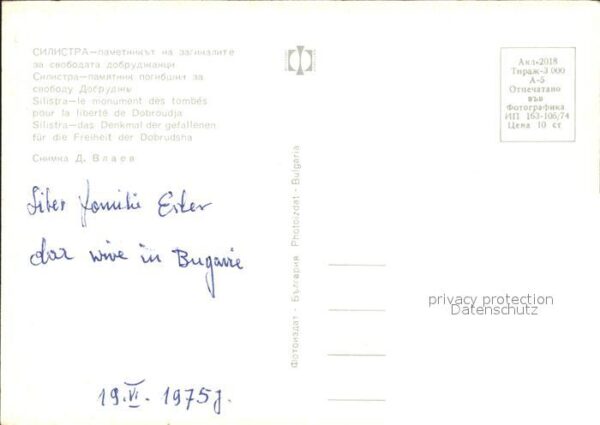 СИЛИСТРА—паметникът на загиналите
за свободата добруджанци
Силистра—памятник погибшим за
свободу Добруджы
Silistra—le monument des tombés
pour la liberté de Dobroudja
Silistra—das Denkmal der gefallenen
für die Freiheit der Dobrudsha
Снимка Д. Влаев
Liber familie Ester
dar wive in Bugarie
19.VI. 1975 j.
Фотоиздат - България Photoizdat - Bulgaria
Акл-2018
Тираж-3 000
А-5
Отпечатано
във
Фотографика
ИП 163-106/74
Цена 10 ст
privacy protection
Datenschutz